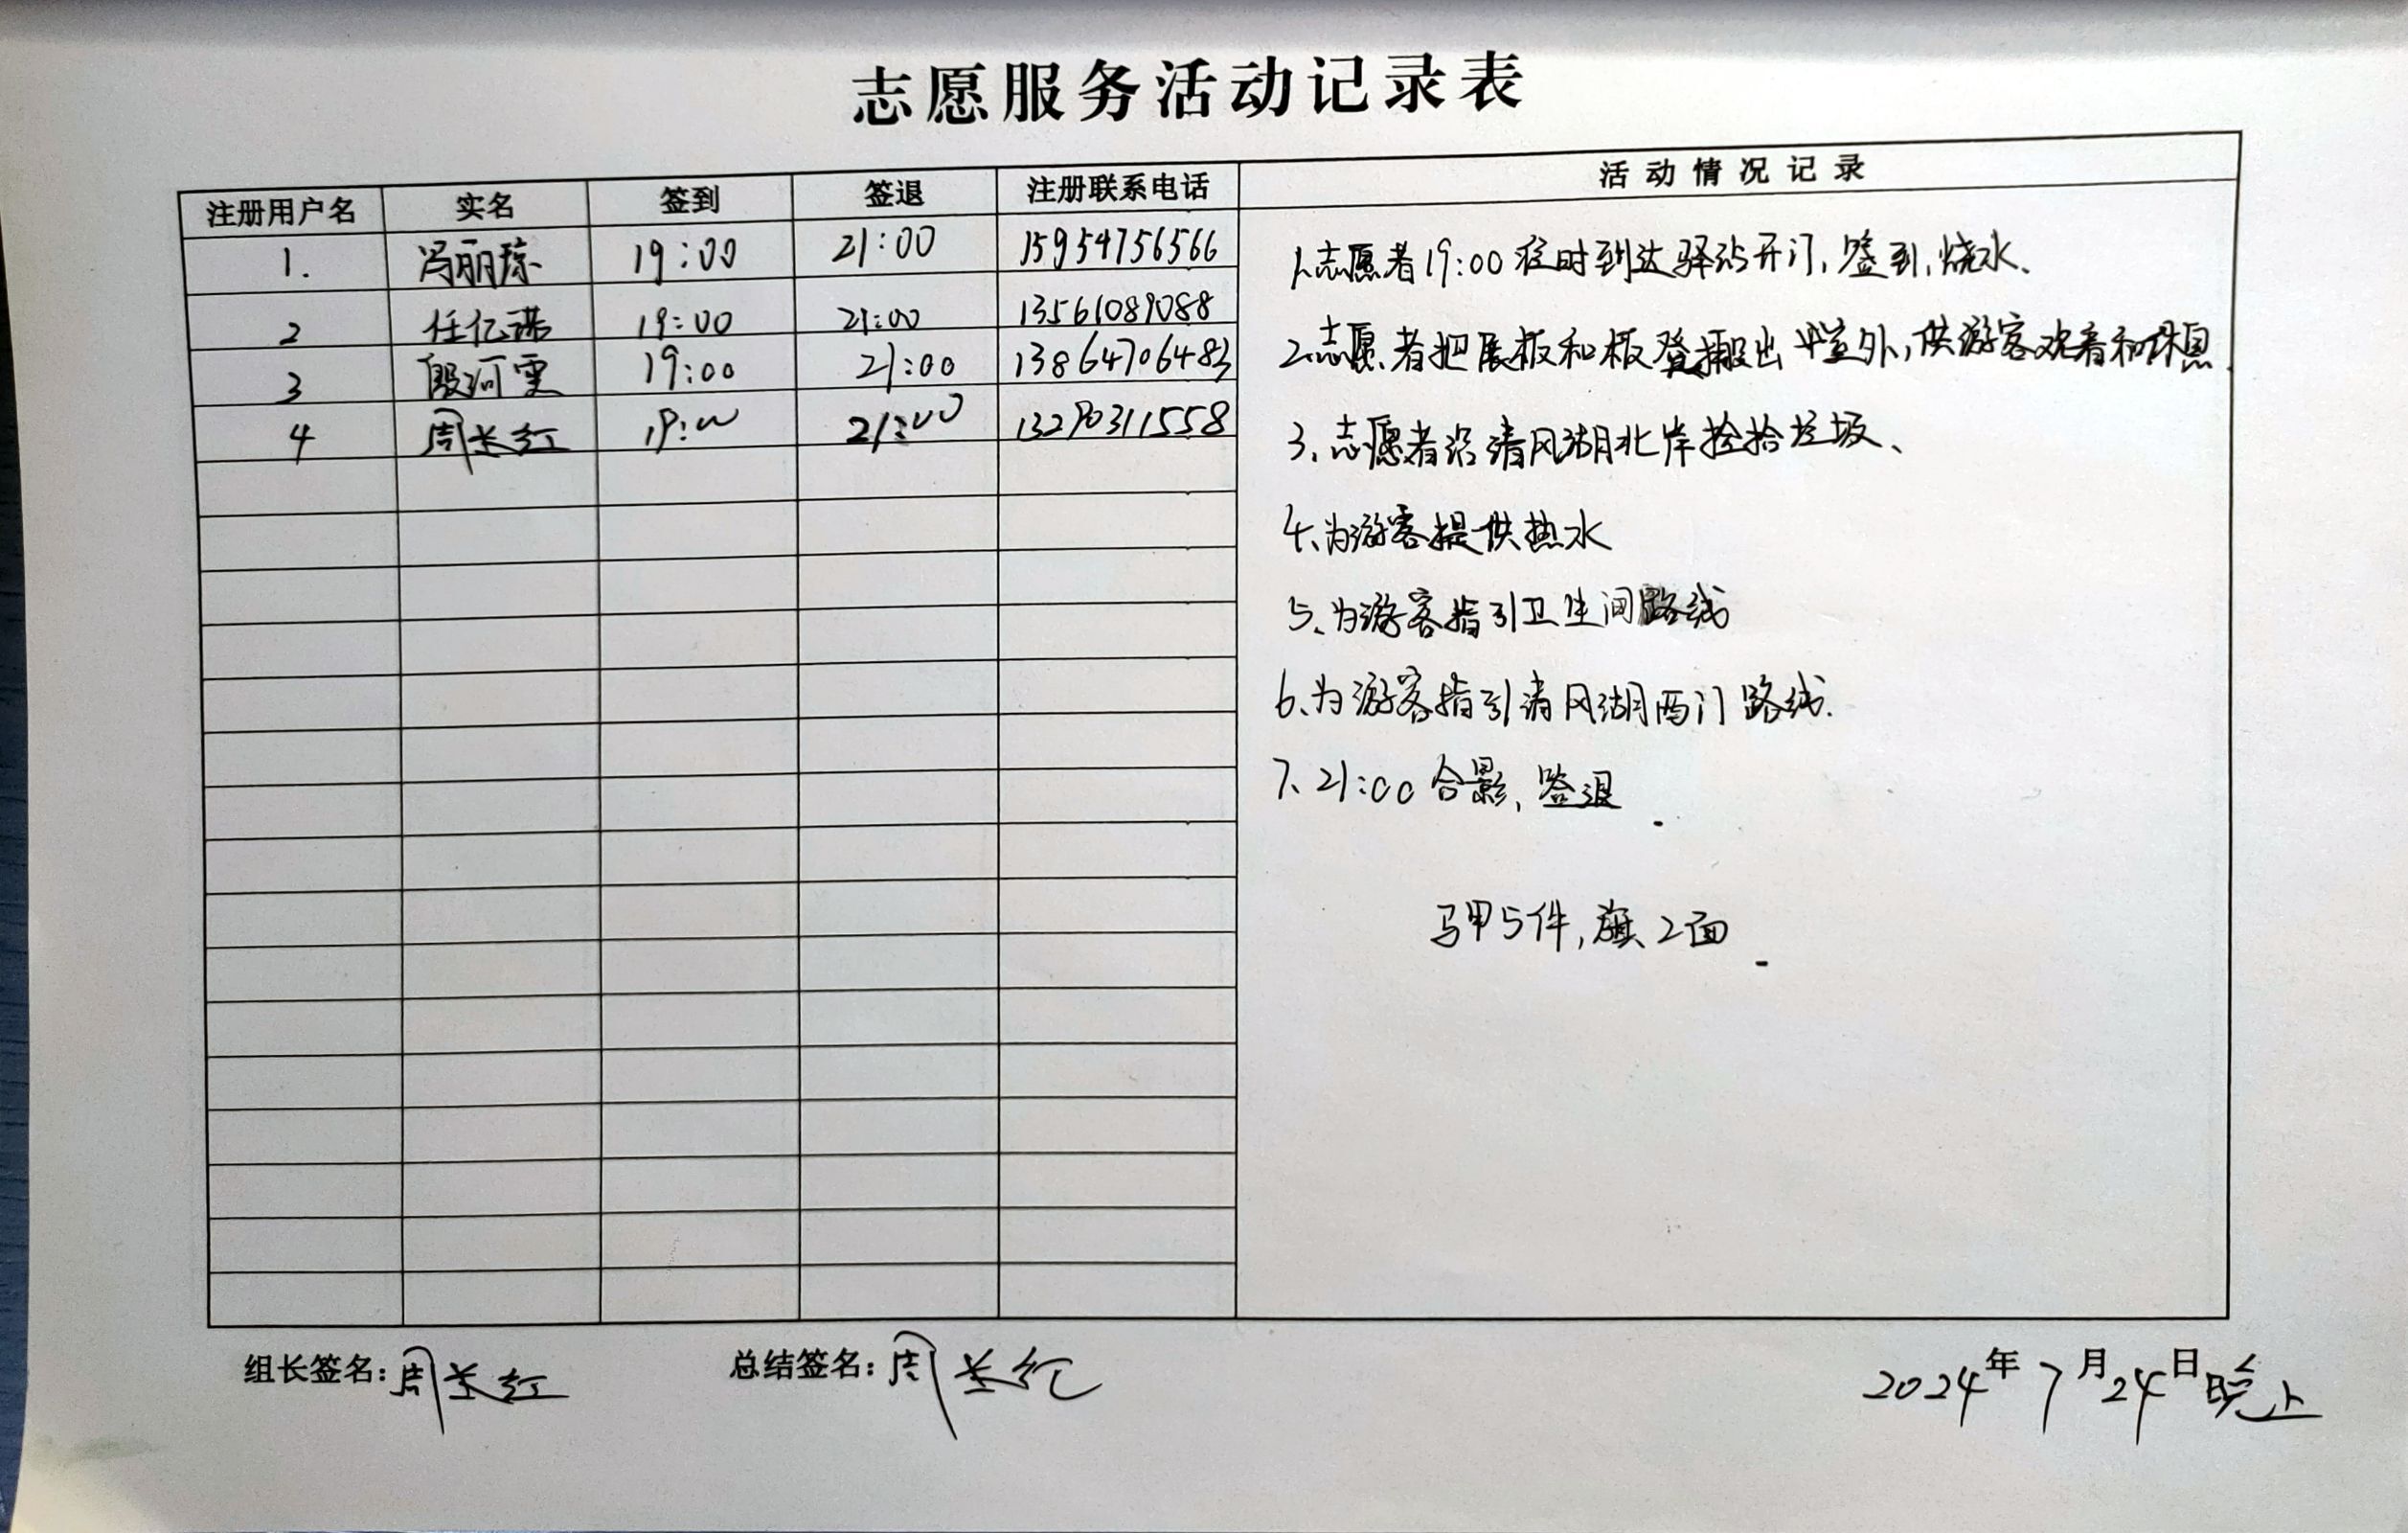 志愿服务活动记录表
注册用户名 实名 签到 签退 注册联系电话 活动情况记录
1. 冯丽琼 19:00 21:00 15954756566
2 任亿诺 19:00 21:00 13561089088
3 殷河雯 19:00 21:00 13864706483
4 周长红 19:00 21:00 13290311558
1.志愿者19:00准时到达驿站开门,签到,烧水、
2.志愿者把展板和板凳搬出室外,供游客观看和休息.
3、志愿者沿清风湖北岸捡拾垃圾、
4、为游客提供热水
5、为游客指引卫生间路线
6、为游客指引清风湖西门路线.
7、21:00合影,签退.
马甲5件,旗2面.
组长签名:周长红 总结签名:周长红 2024年7月24日晚上